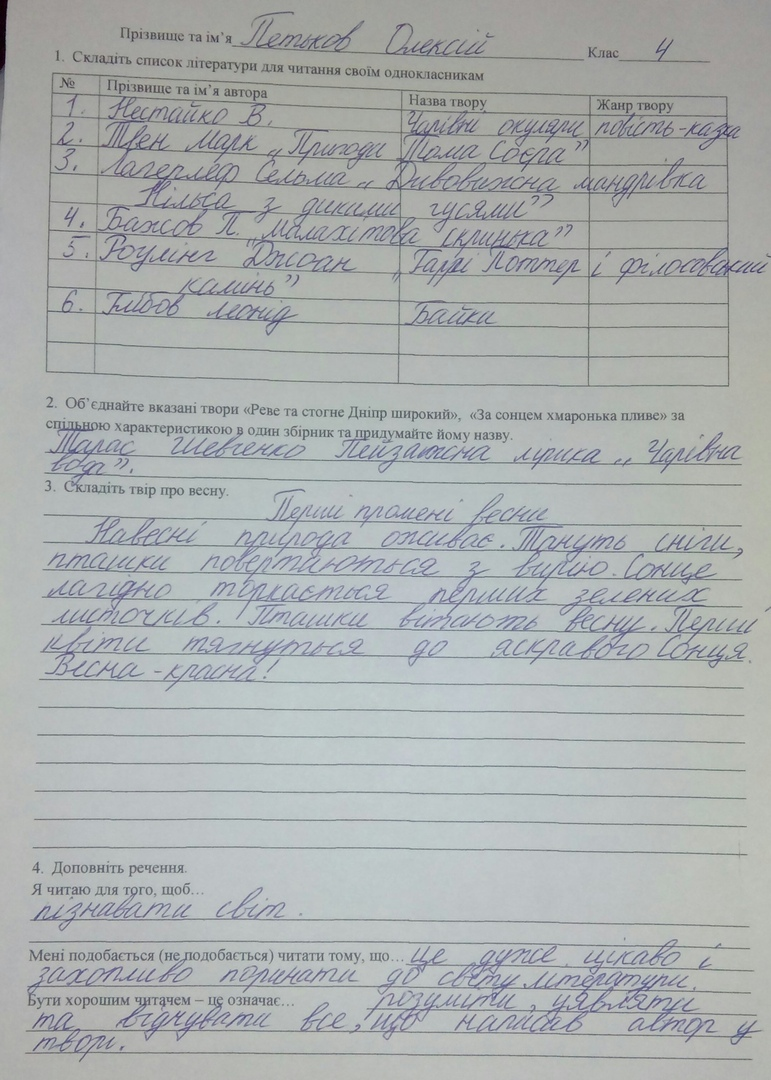 Прізвище та ім’я Петьков Олексій Клас 4
1. Складіть список літератури для читання своїм однокласникам
№ Прізвище та ім’я автора Назва твору Жанр твору
1. Нестайко В. Чарівні окуляри повість-казка
2. Твен Марк „Пригоди Тома Соєра”
3. Лагерлеф Сельма „Дивовижна мандрівка
Нільса з дикими гусями”
4. Бажов П. „Малахітова скринька”
5. Роулінг Джоан „Гаррі Поттер і філософський
камінь”
6. Глібов Леонід Байки
2. Об’єднайте вказані твори «Реве та стогне Дніпр широкий», «За сонцем хмаронька пливе» за
спільною характеристикою в один збірник та придумайте йому назву.
Тарас Шевченко Пейзажна лірика „Чарівна
вода”.
3. Складіть твір про весну.
Перші промені весни
Навесні природа оживає. Тануть сніги,
пташки повертаються з вирію. Сонце
лагідно торкається перших зелених
листочків. Пташки вітають весну. Перші
квіти тягнуться до яскравого Сонця.
Весна - красна!
4. Доповніть речення.
Я читаю для того, щоб…
пізнавати світ.
Мені подобається (не подобається) читати тому, що… це дуже цікаво і
захопливо поринати до світу літератури.
Бути хорошим читачем – це означає… розуміти, уявляти
та відчувати все, що написав автор у
творі.